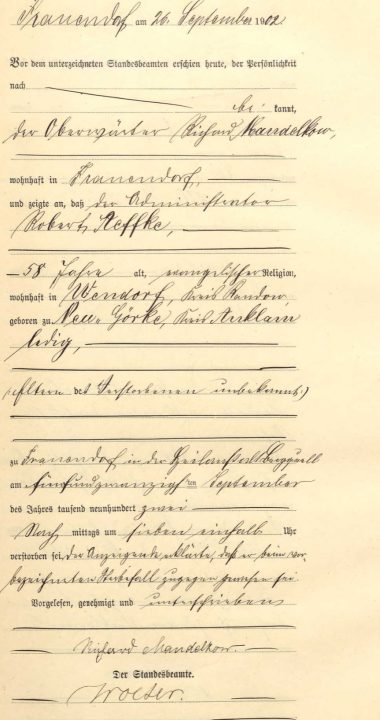 Frauendorf am 26. September 1902
Vor dem unterzeichneten Standesbeamten erschien heute, der Persönlichkeit
nach
be kannt,
der Oberwärter Richard Mandelkow,
wohnhaft in Frauendorf,
und zeigte an, daß der Administrator
Robert Neffke,
58 Jahre alt, evangelischer Religion,
wohnhaft in Wendorf, Kreis Randow
geboren zu Neu-Görke, Kreis Anklam
ledig,
(Eltern des Verstorbenen unbekannt.)
zu Frauendorf in der Heilanstalt Bergquell
am fünfundzwanzigsten September
des Jahres tausend neunhundert zwei
Nach mittags um sieben einhalb Uhr
verstorben sei, der Anzeigende erklärte, daß er beim vor-
bezeichneten Sterbefall zugegen gewesen sei.
Vorgelesen, genehmigt und unterschrieben
Richard Mandelkow.
Der Standesbeamte.